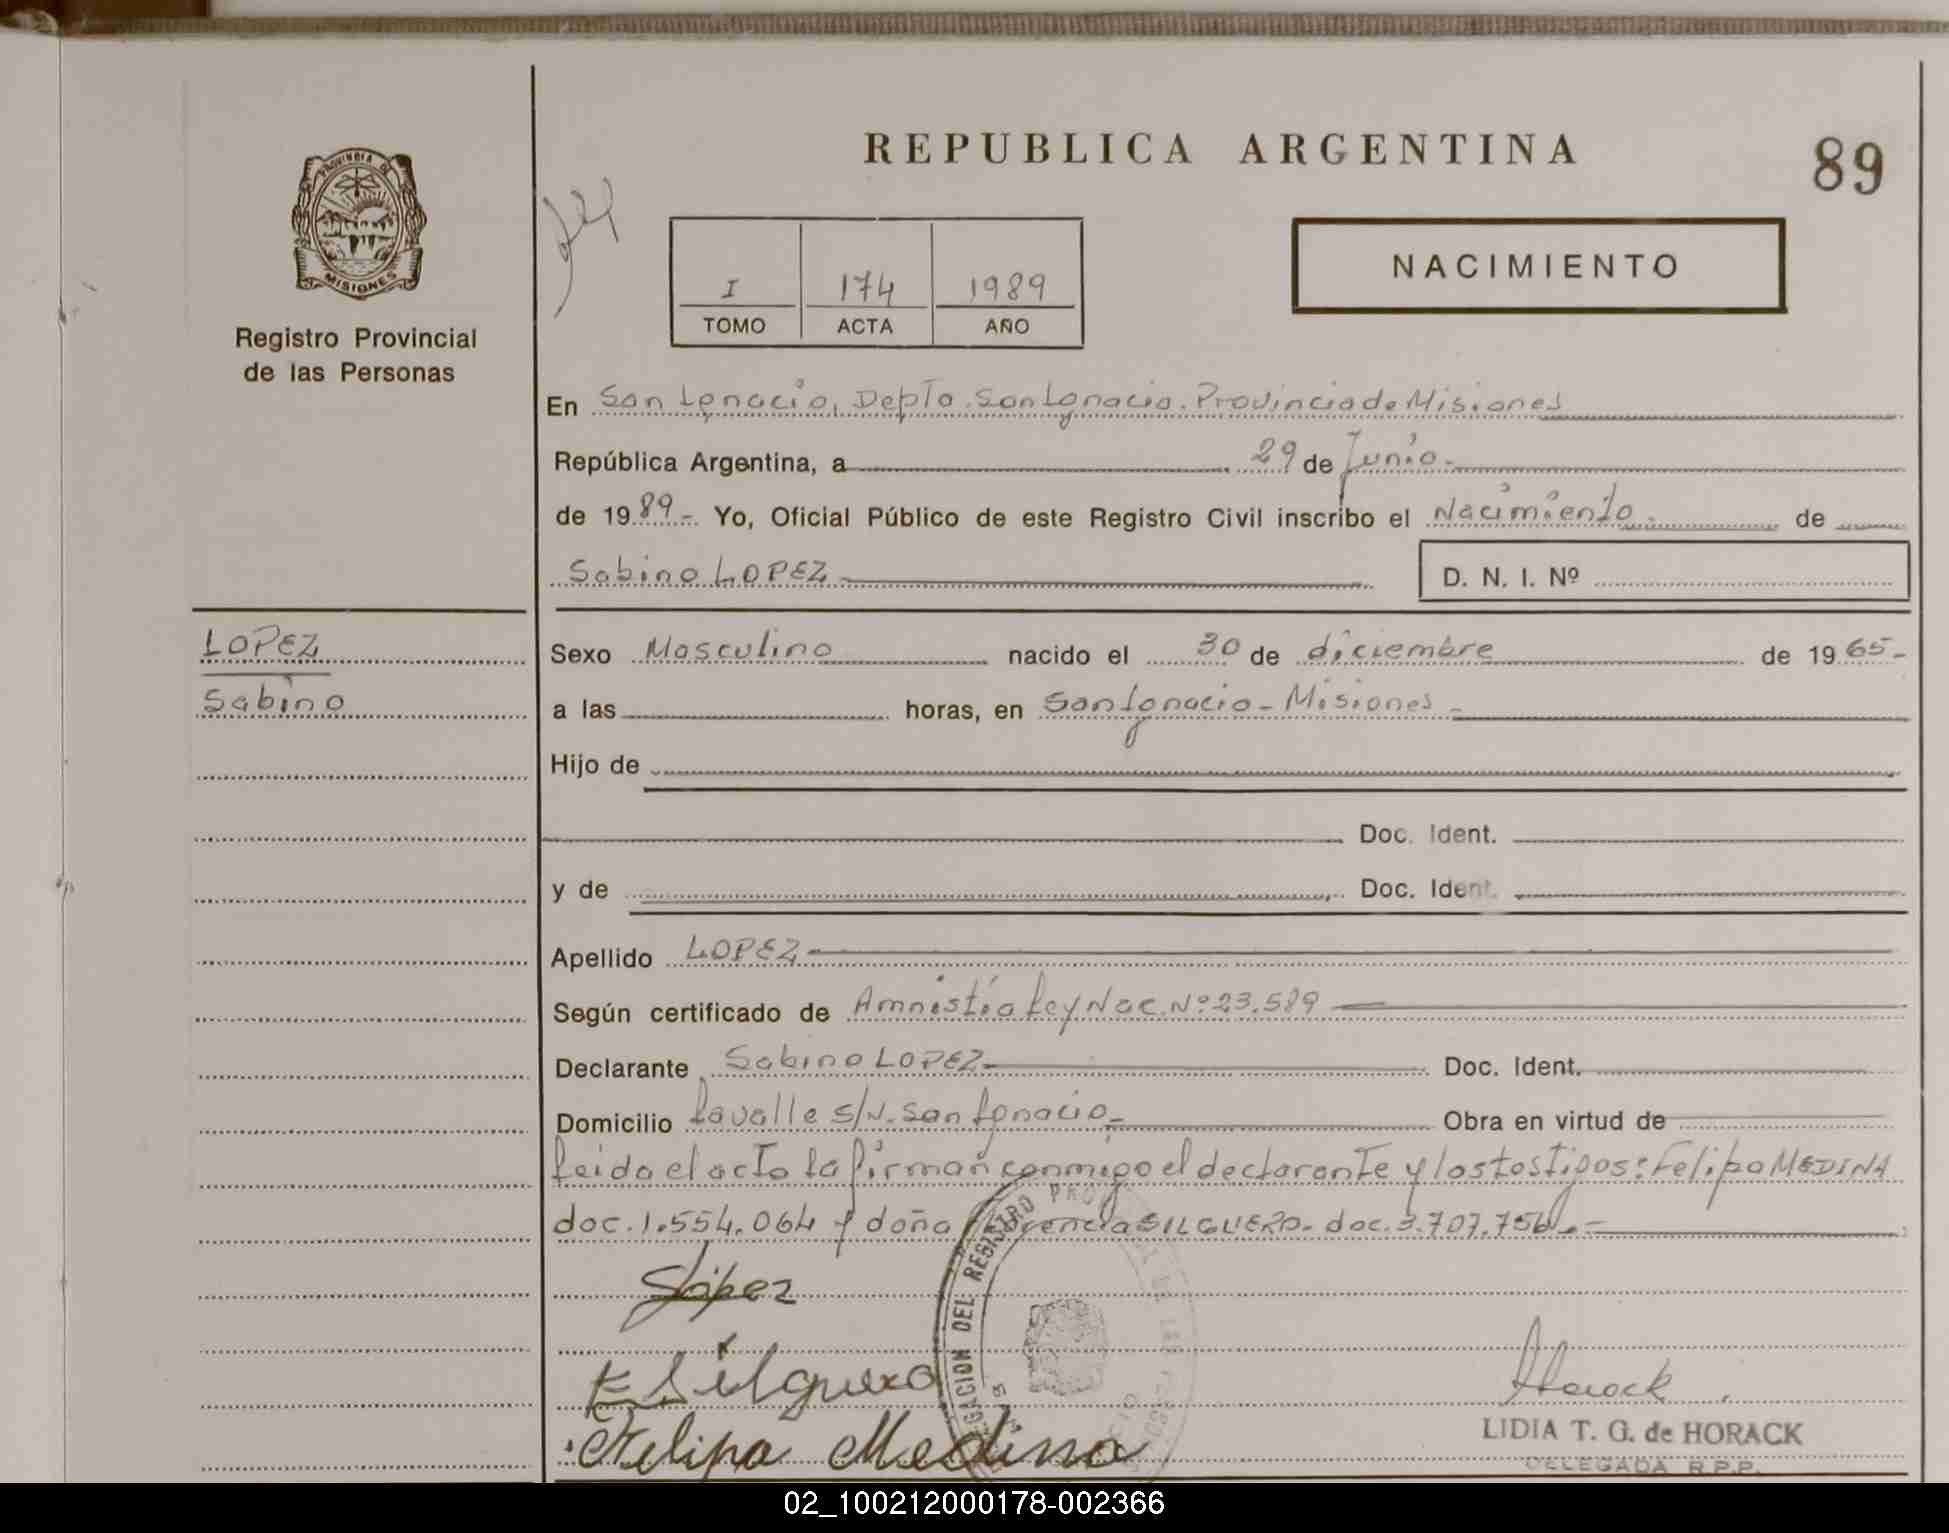 PROVINCIA DE
MISIONES
Registro Provincial
de las Personas
REPUBLICA ARGENTINA
89
I 174 1989
TOMO ACTA AÑO
NACIMIENTO
En San Ignacio, Depto. San Ignacio. Provincia de Misiones
República Argentina, a 29 de Junio.-
de 1989.- Yo, Oficial Público de este Registro Civil inscribo el Nacimiento. de
Sabino LOPEZ
D. N. I. Nº
LOPEZ
Sabino
Sexo Masculino nacido el 30 de diciembre de 1965.-
a las horas, en San Ignacio - Misiones -
Hijo de
Doc. Ident.
y de Doc. Ident.
Apellido LOPEZ
Según certificado de Amnistía Ley Nac. Nº 23.589
Declarante Sabino LOPEZ Doc. Ident.
Domicilio Lavalle s/N. San Ignacio.- Obra en virtud de
Leida el acta la firman conmigo el declarante y los tostigos: Felipa MEDINA
doc. 1.554.064 y doña SILGUERO- doc. 3.707.756.-
López
E Silguero
Felipa Medina
DEL REGISTRO
Horack
LIDIA T. G. de HORACK
DELEGADA R.P.P.
02_100212000178-002366